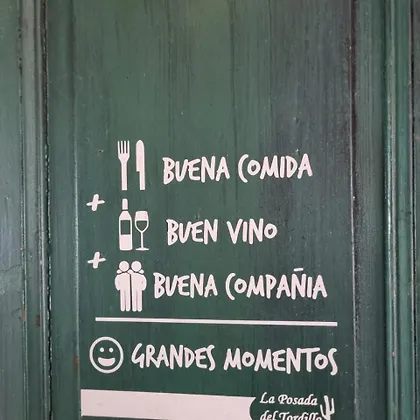 BUENA COMIDA
+
BUEN VINO
+
BUENA COMPAÑIA
GRANDES MOMENTOS
La Posada
del Tordillo